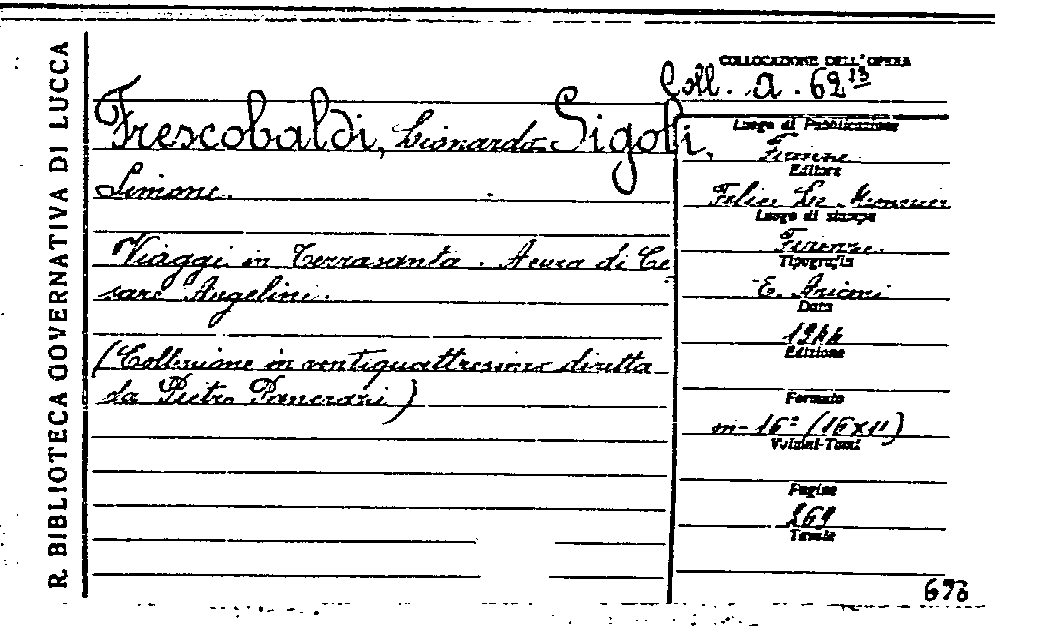 R. BIBLIOTECA GOVERNATIVA DI LUCCA
Frescobaldi, Lionardo. Sigoli,
Simone.
Viaggi in Terrasanta. A cura di Ce
sare Angelini.
(Collezione in ventiquattresimo diretta
da Pietro Pancrazi)
COLLOCAZIONE DELL'OPERA
Coll. A. 62 13
Luogo di Pubblicazione
Firenze
Editore
Felice Le Monnier
Luogo di stampa
Firenze.
Tipografia
E. Ariani
Data
1944
Edizione
Formato
in-16° (16x11)
Volumi-Tomi
Pagine
269
Tavole